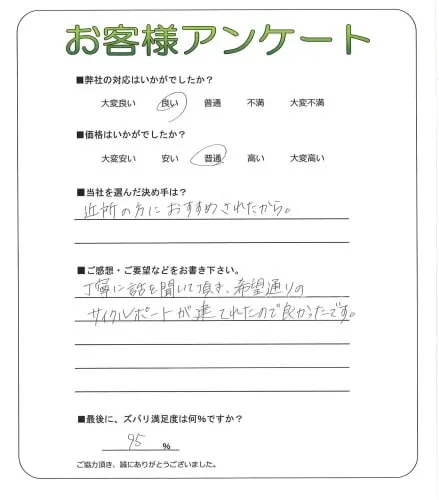 お客様アンケート
■弊社の対応はいかがでしたか？
大変良い 良い 普通 不満 大変不満
■価格はいかがでしたか？
大変安い 安い 普通 高い 大変高い
■当社を選んだ決め手は？
近所の方におすすめされたから。
■ご感想・ご要望などをお書き下さい。
丁寧に話を聞いて頂き、希望通りの
サイクルポートが建てれたので良かったです。
■最後に、ズバリ満足度は何%ですか？
95 %
ご協力頂き、誠にありがとうございました。